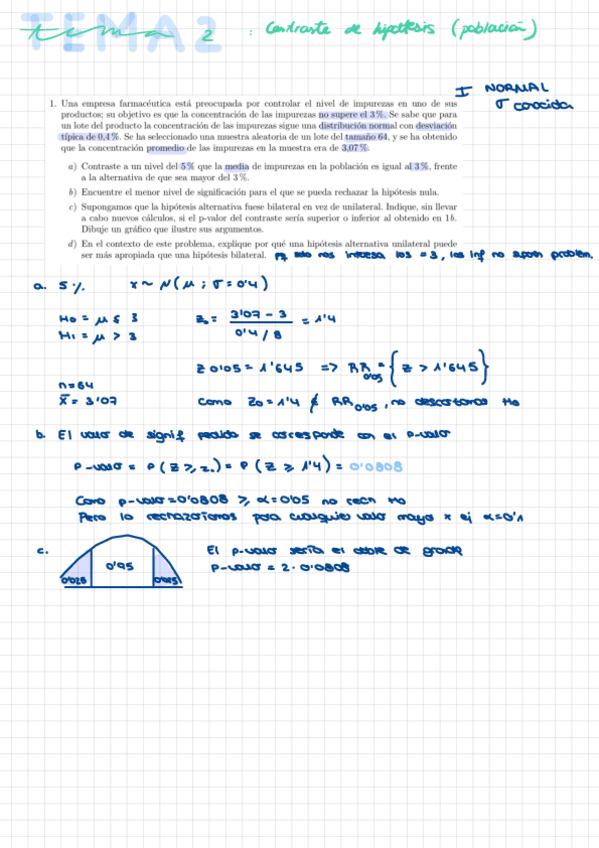 TEMA 2
tema 2 : Contraste de hipótesis (población)
I NORMAL
σ conocida
1. Una empresa farmacéutica está preocupada por controlar el nivel de impurezas en uno de sus
productos; su objetivo es que la concentración de las impurezas no supere el 3%. Se sabe que para
un lote del producto la concentración de las impurezas sigue una distribución normal con desviación
típica de 0,4%. Se ha seleccionado una muestra aleatoria de un lote del tamaño 64, y se ha obtenido
que la concentración promedio de las impurezas en la muestra era de 3,07%.
a) Contraste a un nivel del 5% que la media de impurezas en la población es igual al 3%, frente
a la alternativa de que sea mayor del 3%.
b) Encuentre el menor nivel de significación para el que se pueda rechazar la hipótesis nula.
c) Supongamos que la hipótesis alternativa fuese bilateral en vez de unilateral. Indique, sin llevar
a cabo nuevos cálculos, si el p-valor del contraste sería superior o inferior al obtenido en 1b.
Dibuje un gráfico que ilustre sus argumentos.
d) En el contexto de este problema, explique por qué una hipótesis alternativa unilateral puede
ser más apropiada que una hipótesis bilateral. pq solo nos interesa los = 3, los inf no problem.
a. 5% x ~ N(μ ; σ = 0'4)
H0 = μ ≤ 3
H1 = μ > 3
Z0 = 3'07 - 3 / 0'4 / 8 = 1'4
Z 0'05 = 1'645 => RR0'05 = { Z > 1'645 }
n = 64
x̄ = 3'07
como Z0 = 1'4 ∉ RR0'05, no descartamos H0
b. El valor de signif pedido se corresponde con el p-valor
P-valor = P(Z ≥ Z0) = P(Z ≥ 1'4) = 0'0808
Como p-valor = 0'0808 ≥ α = 0'05 no rech H0
Pero lo rechazaríamos para cualquier valor mayor x ej α = 0'1
c.
0'025 0'95 0'025
El p-valor sería el doble de grande
P-valor = 2 · 0'0808